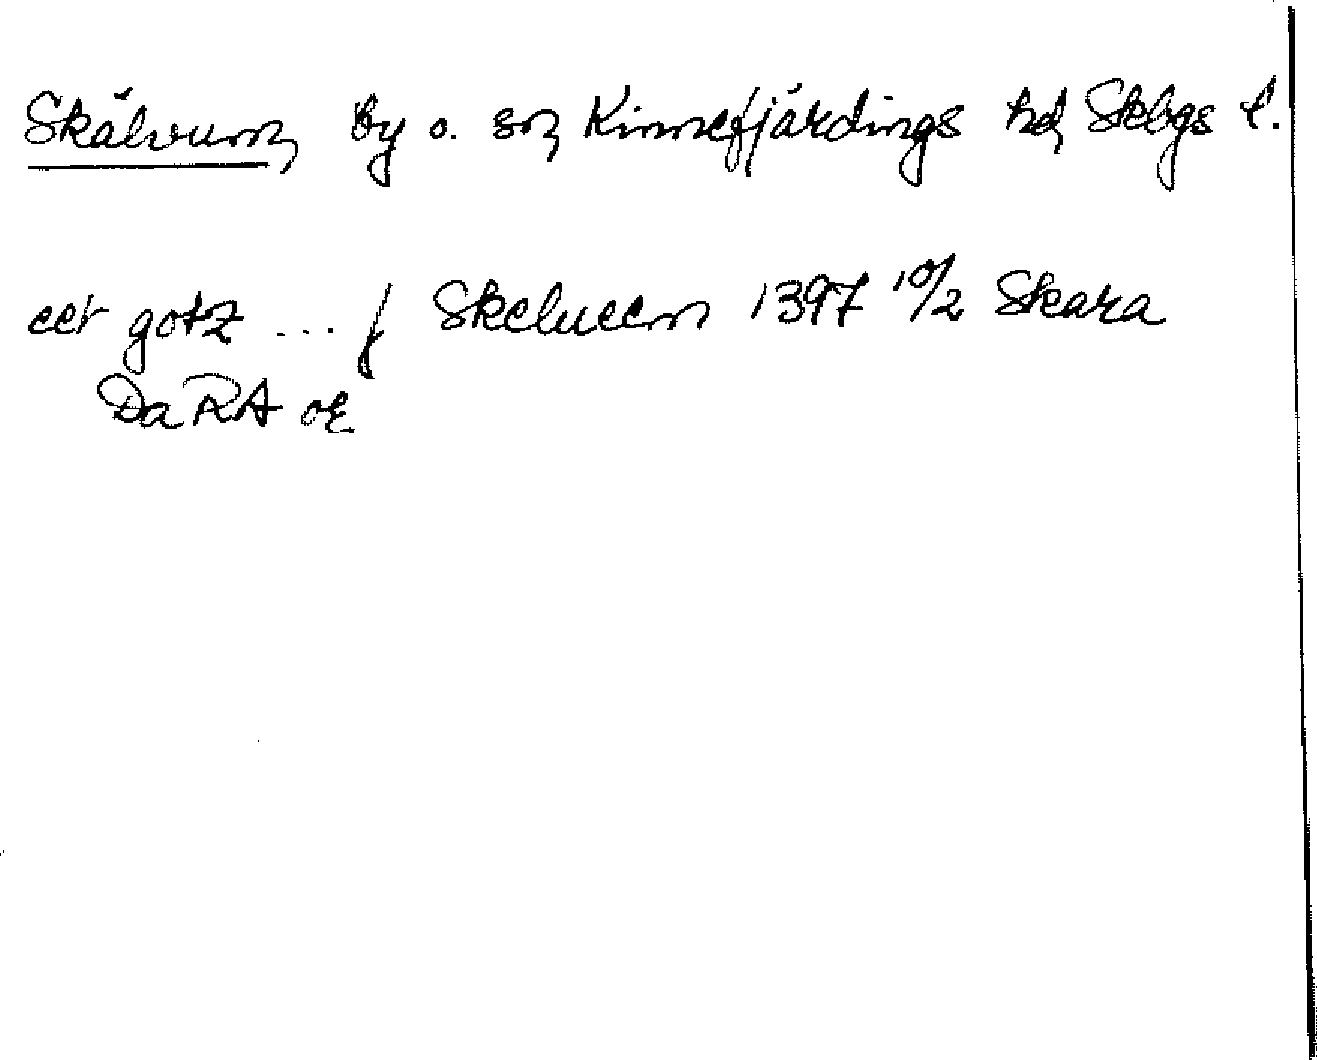 Skälvum, by o. sn, Kinnefjärdings hd, Skbgs l.
eet gotz ... j Skelueem 1397 10/2 Skara
DaRA or